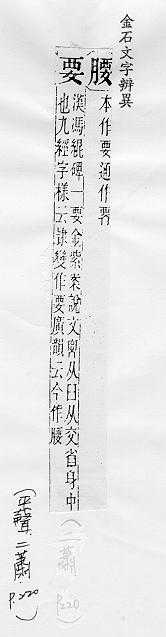 金石文字辨異
腰 本作要通作
要
漢馮緄碑一要金紫案說文从臼从交省身中
也九經字樣云隸變作要廣韻云今作腰
(二蕭 P220)
(平聲二蕭 P.220)